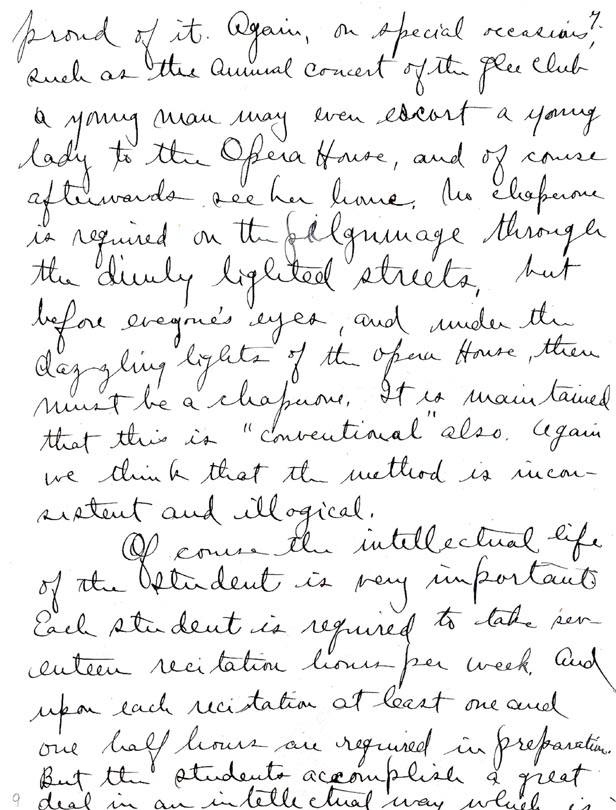 7.
proud of it. Again, on special occasions,
such as the annual concert of the glee club
a young man may even escort a young
lady to the Opera House, and of course
afterwards see her home. No chaperone
is required on the pilgrimage through
the dimly lighted streets, but
before everyone's eyes, and under the
dazzling lights of the opera House, there
must be a chaperone. It is maintained
that this is "conventional" also. Again
we think that the method is incon-
sistent and illogical.
Of course the intellectual life
of the student is very important.
Each student is required to take sev-
enteen recitation hours per week. And
upon each recitation at least one and
one half hours are required in preparation.
But the students accomplish a great
deal in an intellectual way which is
9